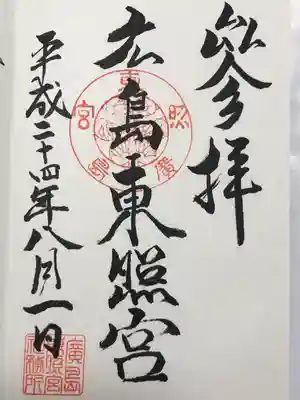 參拝
広島東照宮
平成二十四年八月一日
廣島東照宮
廣島
東照宮
社務所